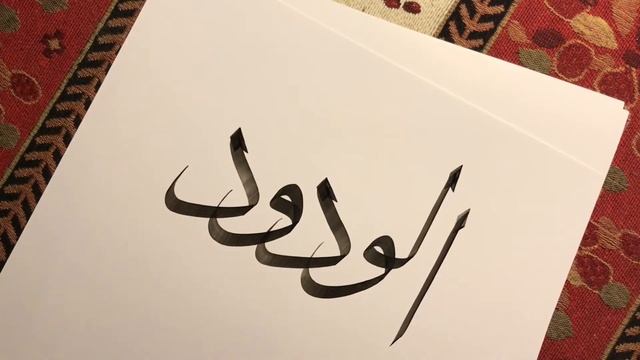 الودود